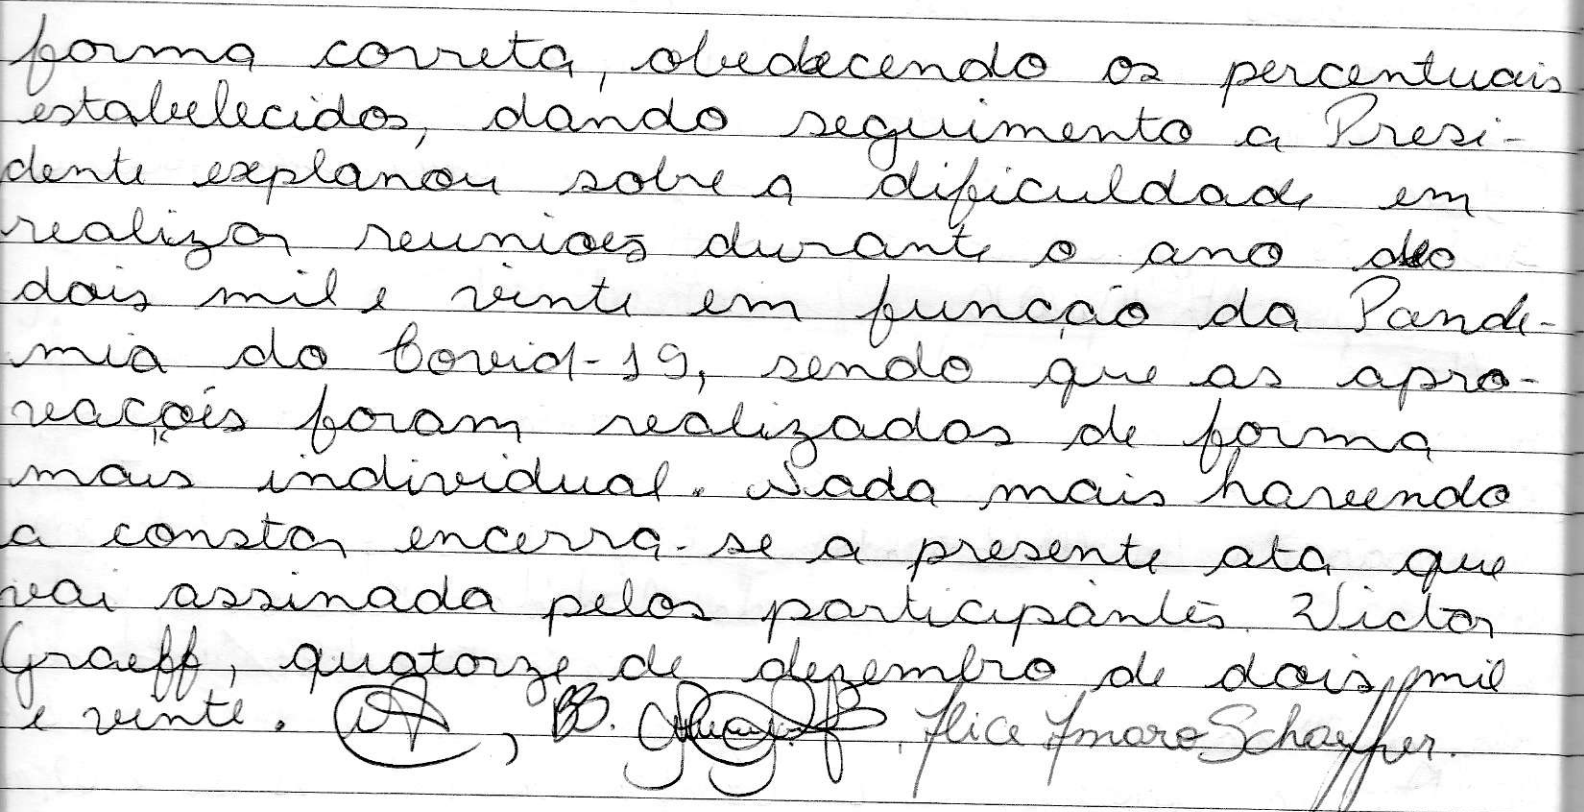 forma correta, obedecendo os percentuais
estabelecidos, dando seguimento a Presi-
dente explanou sobre a dificuldade em
realizar reuniões durante o ano de
dois mil e vinte em função da Pande-
mia do Covid-19, sendo que as apro-
vações foram realizadas de forma
mais individual. Nada mais havendo
a constar encerra-se a presente ata que
vai assinada pelos participantes. Victor
Graeff, quatorze de dezembro de dois mil
e vinte. , BB. Alice Amaro Schaeffer.